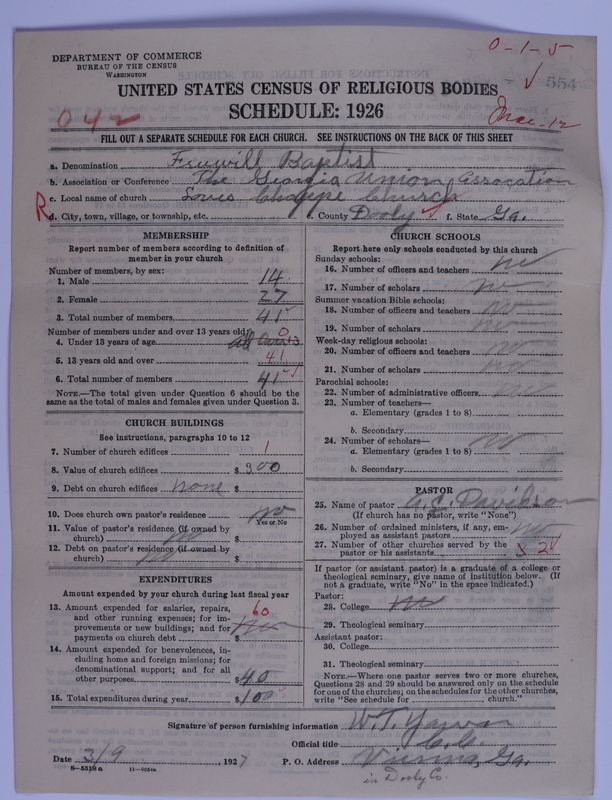 DEPARTMENT OF COMMERCE
BUREAU OF THE CENSUS
WASHINGTON
0-1-5
554
UNITED STATES CENSUS OF RELIGIOUS BODIES
SCHEDULE: 1926
042
FILL OUT A SEPARATE SCHEDULE FOR EACH CHURCH. SEE INSTRUCTIONS ON THE BACK OF THIS SHEET
a. Denomination Freewill Baptist
b. Association or Conference The Georgia Union Association
c. Local name of church Chappel Church
R
d. City, town, village, or township, etc. e. County Dooly f. State Ga.
MEMBERSHIP
Report number of members according to definition of
member in your church
Number of members, by sex:
1. Male 14
2. Female 27
3. Total number of members 41
Number of members under and over 13 years old:
4. Under 13 years of age 0 all over 13
5. 13 years old and over 41
6. Total number of members 41
NOTE.—The total given under Question 6 should be the
same as the total of males and females given under Question 3.
CHURCH BUILDINGS
See instructions, paragraphs 10 to 12
7. Number of church edifices 1
8. Value of church edifices $300
9. Debt on church edifices none $
10. Does church own pastor's residence no
Yes or No
11. Value of pastor's residence (if owned by
church) no $
12. Debt on pastor's residence (if owned by
church) no $
EXPENDITURES
Amount expended by your church during last fiscal year
13. Amount expended for salaries, repairs,
and other running expenses; for im-
provements or new buildings; and for
payments on church debt $ 60
14. Amount expended for benevolences, in-
cluding home and foreign missions; for
denominational support; and for all
other purposes $40
15. Total expenditures during year $100
CHURCH SCHOOLS
Report here only schools conducted by this church
Sunday schools:
16. Number of officers and teachers no
17. Number of scholars no
Summer vacation Bible schools:
18. Number of officers and teachers no
19. Number of scholars no
Week-day religious schools:
20. Number of officers and teachers no
21. Number of scholars no
Parochial schools:
22. Number of administrative officers no
23. Number of teachers—
a. Elementary (grades 1 to 8)
b. Secondary
24. Number of scholars— no
a. Elementary (grades 1 to 8)
b. Secondary
PASTOR
25. Name of pastor Davidson
(If church has no pastor, write "None")
26. Number of ordained ministers, if any, em-
ployed as assistant pastors no
27. Number of other churches served by the
pastor or his assistants 2
If pastor (or assistant pastor) is a graduate of a college or
theological seminary, give name of institution below. (If
not a graduate, write "No" in the space indicated.)
Pastor:
28. College no
29. Theological seminary
Assistant pastor:
30. College
31. Theological seminary
NOTE.—Where one pastor serves two or more churches,
Questions 28 and 29 should be answered only on the schedule
for one of the churches; on the schedules for the other churches,
write "See schedule for church."
Signature of person furnishing information W. T.
Official title C. C.
Date 3/9, 1927 P. O. Address Ga.
8-5519a 11-9054a in Dooly Co.